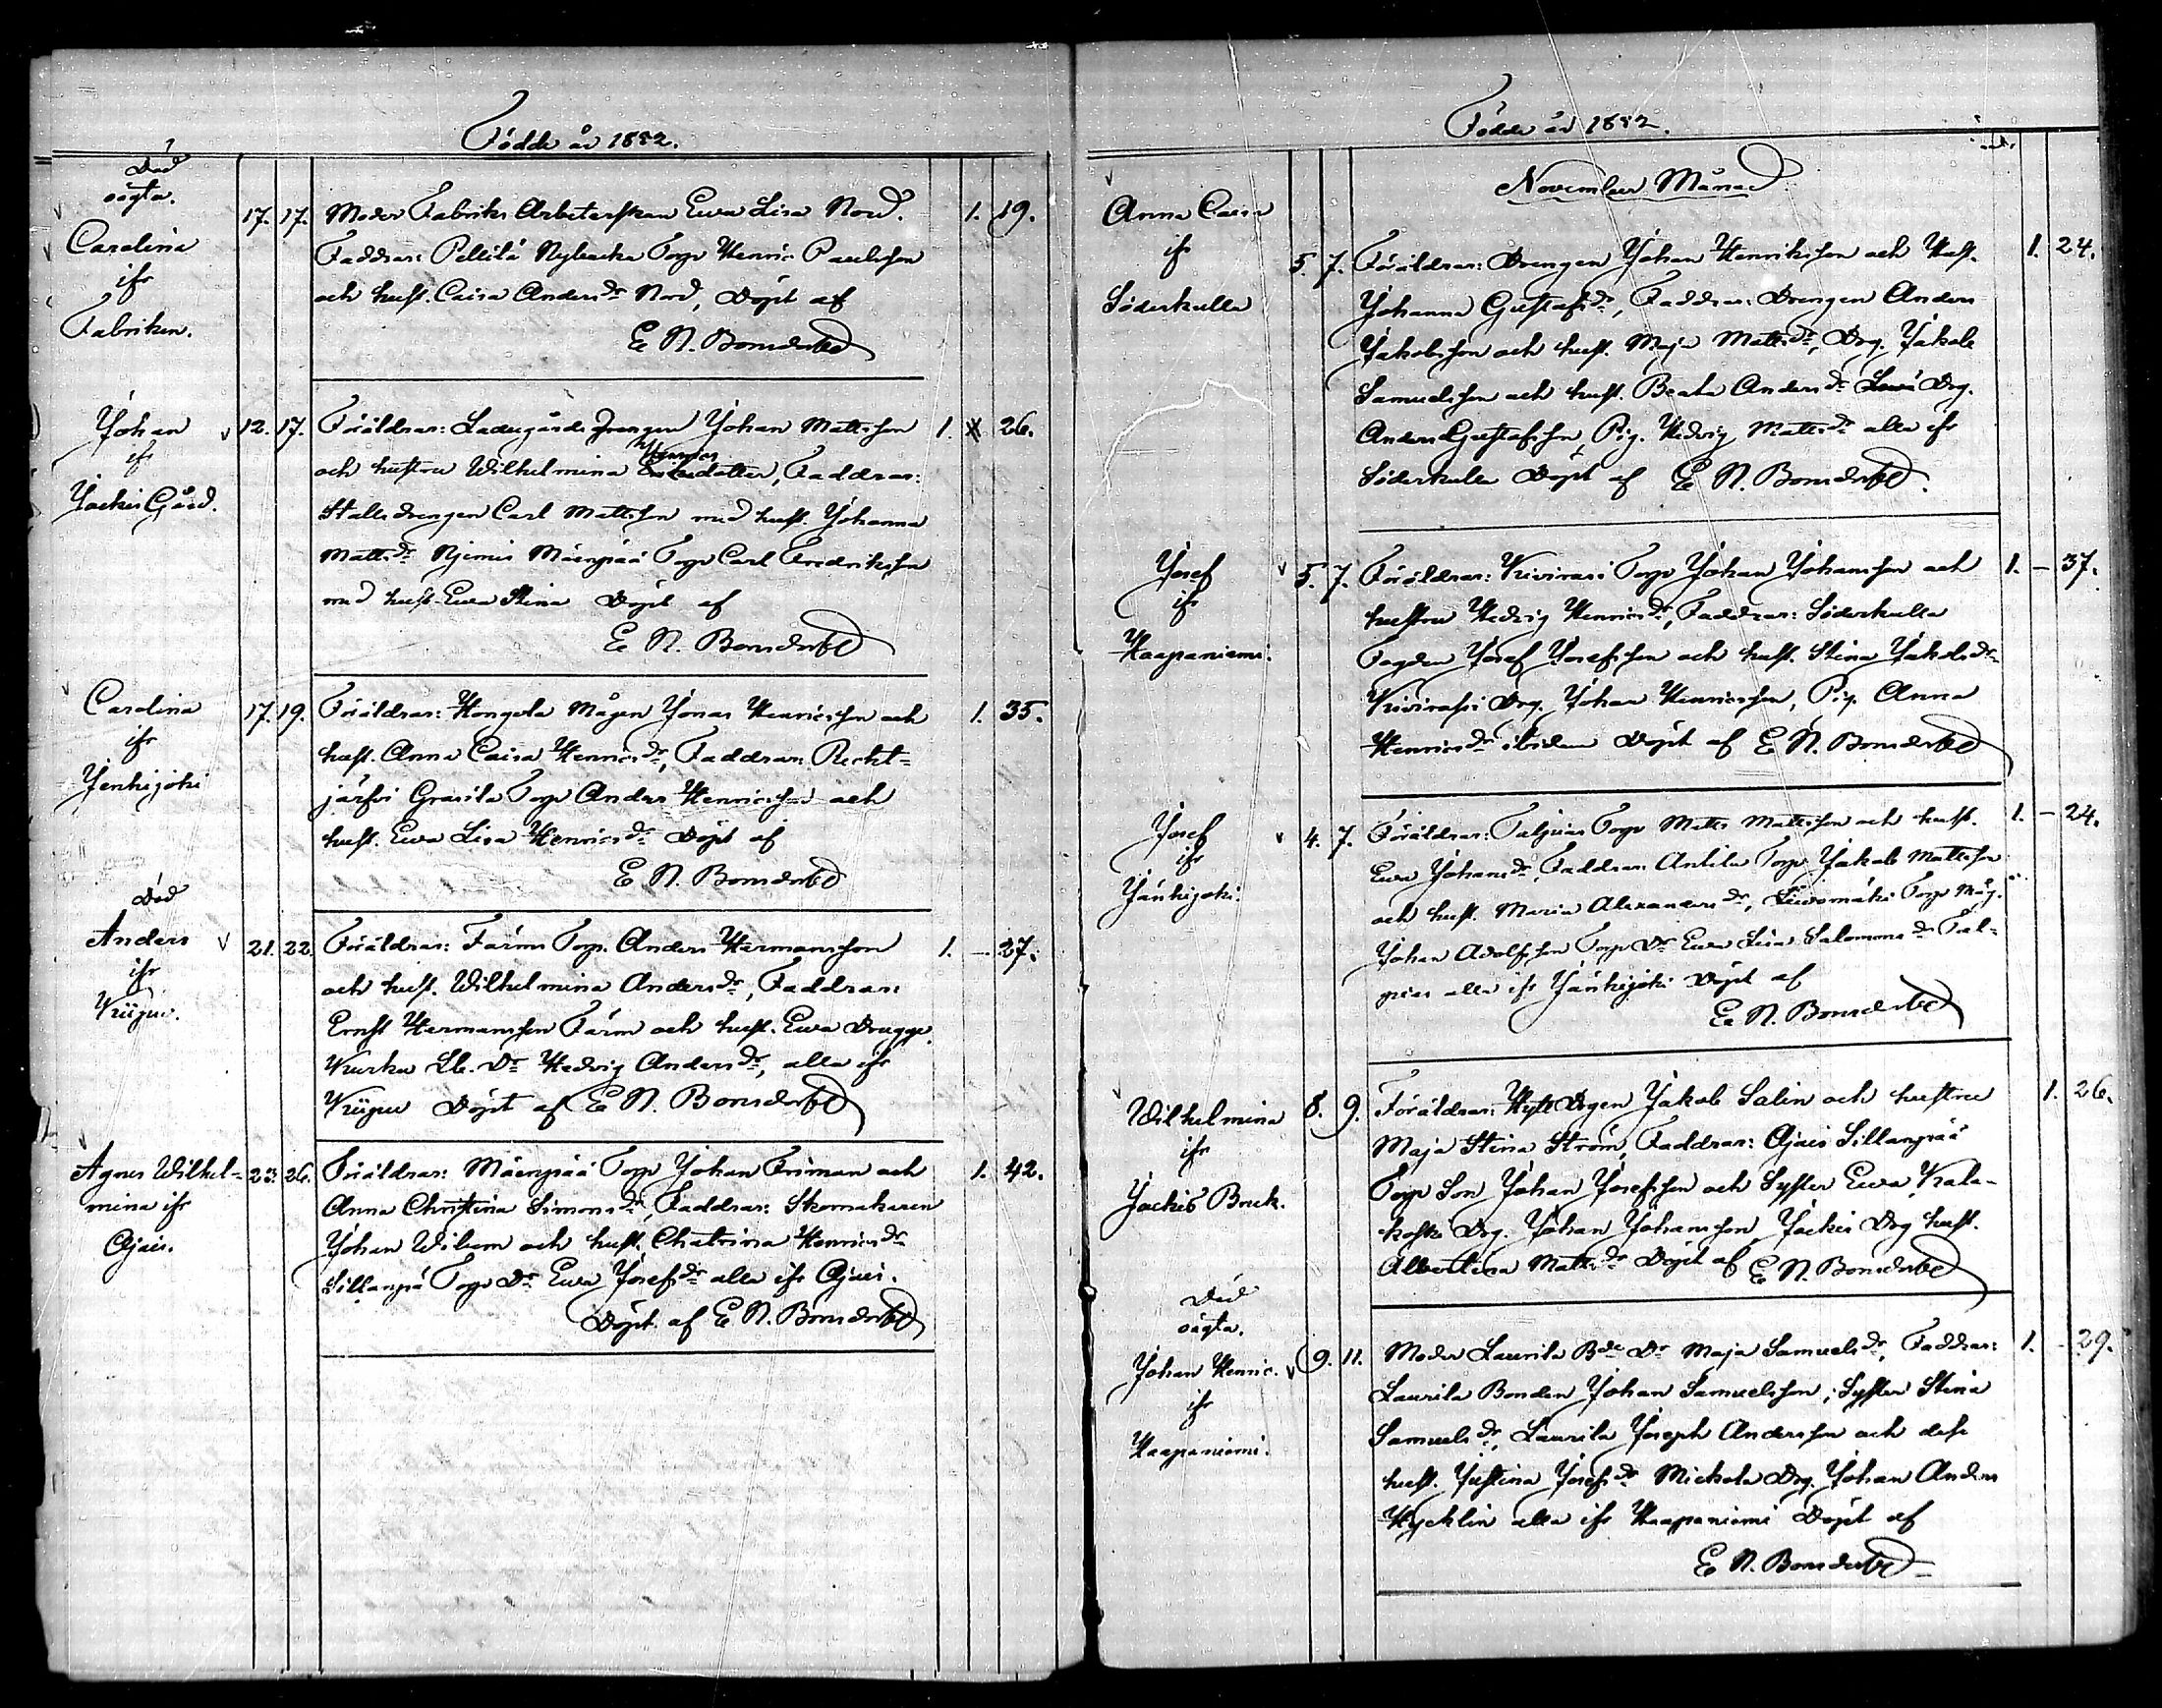 Födde år 1852.
Död
oägta.
Carolina
ifr
Fabriken.
17. 17. Moder Fabriks Arbeterskan Ewa Lisa Nord. 1. 19.
Faddrar: Pellilä Nybacka Torp. Henric Paulsson
och hust. Caisa Andersdr Nord, Döpt af
E N. Bonsdorff
Johan
ifr
Jockis Gård.
12. 17. Föräldrar: Ladugårds Drengen Johan Mattsson 1. 26.
och hustru Wilhelmina Henricsdotter, Faddrar:
Stallsdrengen Carl Mattsson med hust. Johanna
Mattsdr Mäenpää Torp Carl Fredriksson
med hust. Ewa Stina Döpt af
E N. Bonsdorff
Carolina
ifr
Jenkijoki
17. 19. Föräldrar: Hongela Mågen Jonas Henricsson och 1. 35.
hust. Anna Caisa Henricsdr, Faddrar: Recht=
järfvi Grasila Torp Anders Henricsson och
hust. Ewa Lisa Henricsdr Döpt af
E N. Bonsdorff
Död
Anders
ifr
Kiipu.
21. 22. Föräldrar: Färm Torp. Anders Hermansson 1. - 27.
och hust. Wilhelmina Andersdr, Faddrar:
Ernst Hermansson Färm och hust. Ewa Drugge.
Kurku Dr Hedvig Andersdr, alla ifr
Kiipu Döpt af E N. Bonsdorff
Agnes Wilhel=
mina ifr
Ojais.
23. 26. Föräldrar: Mäenpää Torp Johan Friman och 1. 42.
Anna Christina Simonsdr, Faddrar: Skomakaren
Johan Wilsem och hust. Chatrina Henricsdr
Sillanpä Torp Dr Ewa Josefsdr alla ifr Ojais.
Döpt af E N. Bonsdorff
Födde år 1852.
November Månad
Anna Caisa
ifr
Söderkulla
5. 7. Föräldrar: Drengen Johan Henriksson och Hust. 1. 24.
Johanna Gustafsdr, Faddrar: Drengen Anders
Jakobsson och hust. Maja Mattsdr, Drg. Jakob
Samuelsson och hust. Beata Andersdr Drg.
Anders Gustafsson, Pig. Hedvig Mattsdr alla ifr
Söderkulla Döpt af E N. Bonsdorff.
Josef
ifr
Haapaniemi.
5. 7. Föräldrar: Kivivasi Torp Johan Johansson och 1. - 37.
hustru Hedvig Henricsdr, Faddrar: Söderkulla
Fogden Josef Josefsson och hust. Stina Jakobsdr
Drg. Johan Henricsson, Pig. Anna
Henricsdr ibidem Döpt af E N. Bonsdorff
Josef
ifr
Jänhijoki.
4. 7. Föräldrar: Talpias Torp Matts Mattsson och hust. 1. - 24.
Ewa Johansdr, Faddrar: Anttila Torp Jakob Mattsson
och hust. Maria Alexandersdr, Torp Måg.
Johan Adolfsson, Torp Dr Ewa Lisa Salomonsdr Tal=
pias alla ifr Jänhijoki Döpt af
E N. Bonsdorff
Wilhelmina
ifr
Jockis Bruk.
8. 9. Föräldrar: Hytt Drgen Jakob Salin och hustru 1. 26.
Maja Stina Ström, Faddrar: Ojais Sillanpää
Torp Son Johan Josefsson och Syster Ewa Kala-
koski Drg. Johan Johansson, Jockis Drg hust.
Albertina Mattsdr Döpt af E N. Bonsdorff
Död
oägta.
Johan Henric.
ifr
Haapaniemi.
9. 11. Moder Laurila Bde Dr Maja Samuelsdr, Faddrar: 1. - 29.
Laurila Bonden Johan Samuelsson, Syster Stina
Samuelsdr, Laurila Joseph Andersson och dess
hust. Justina Josefsdr Mickola Drg. Johan Anders
Hycklin alla ifr Haapaniemi Döpt af
E N. Bonsdorff